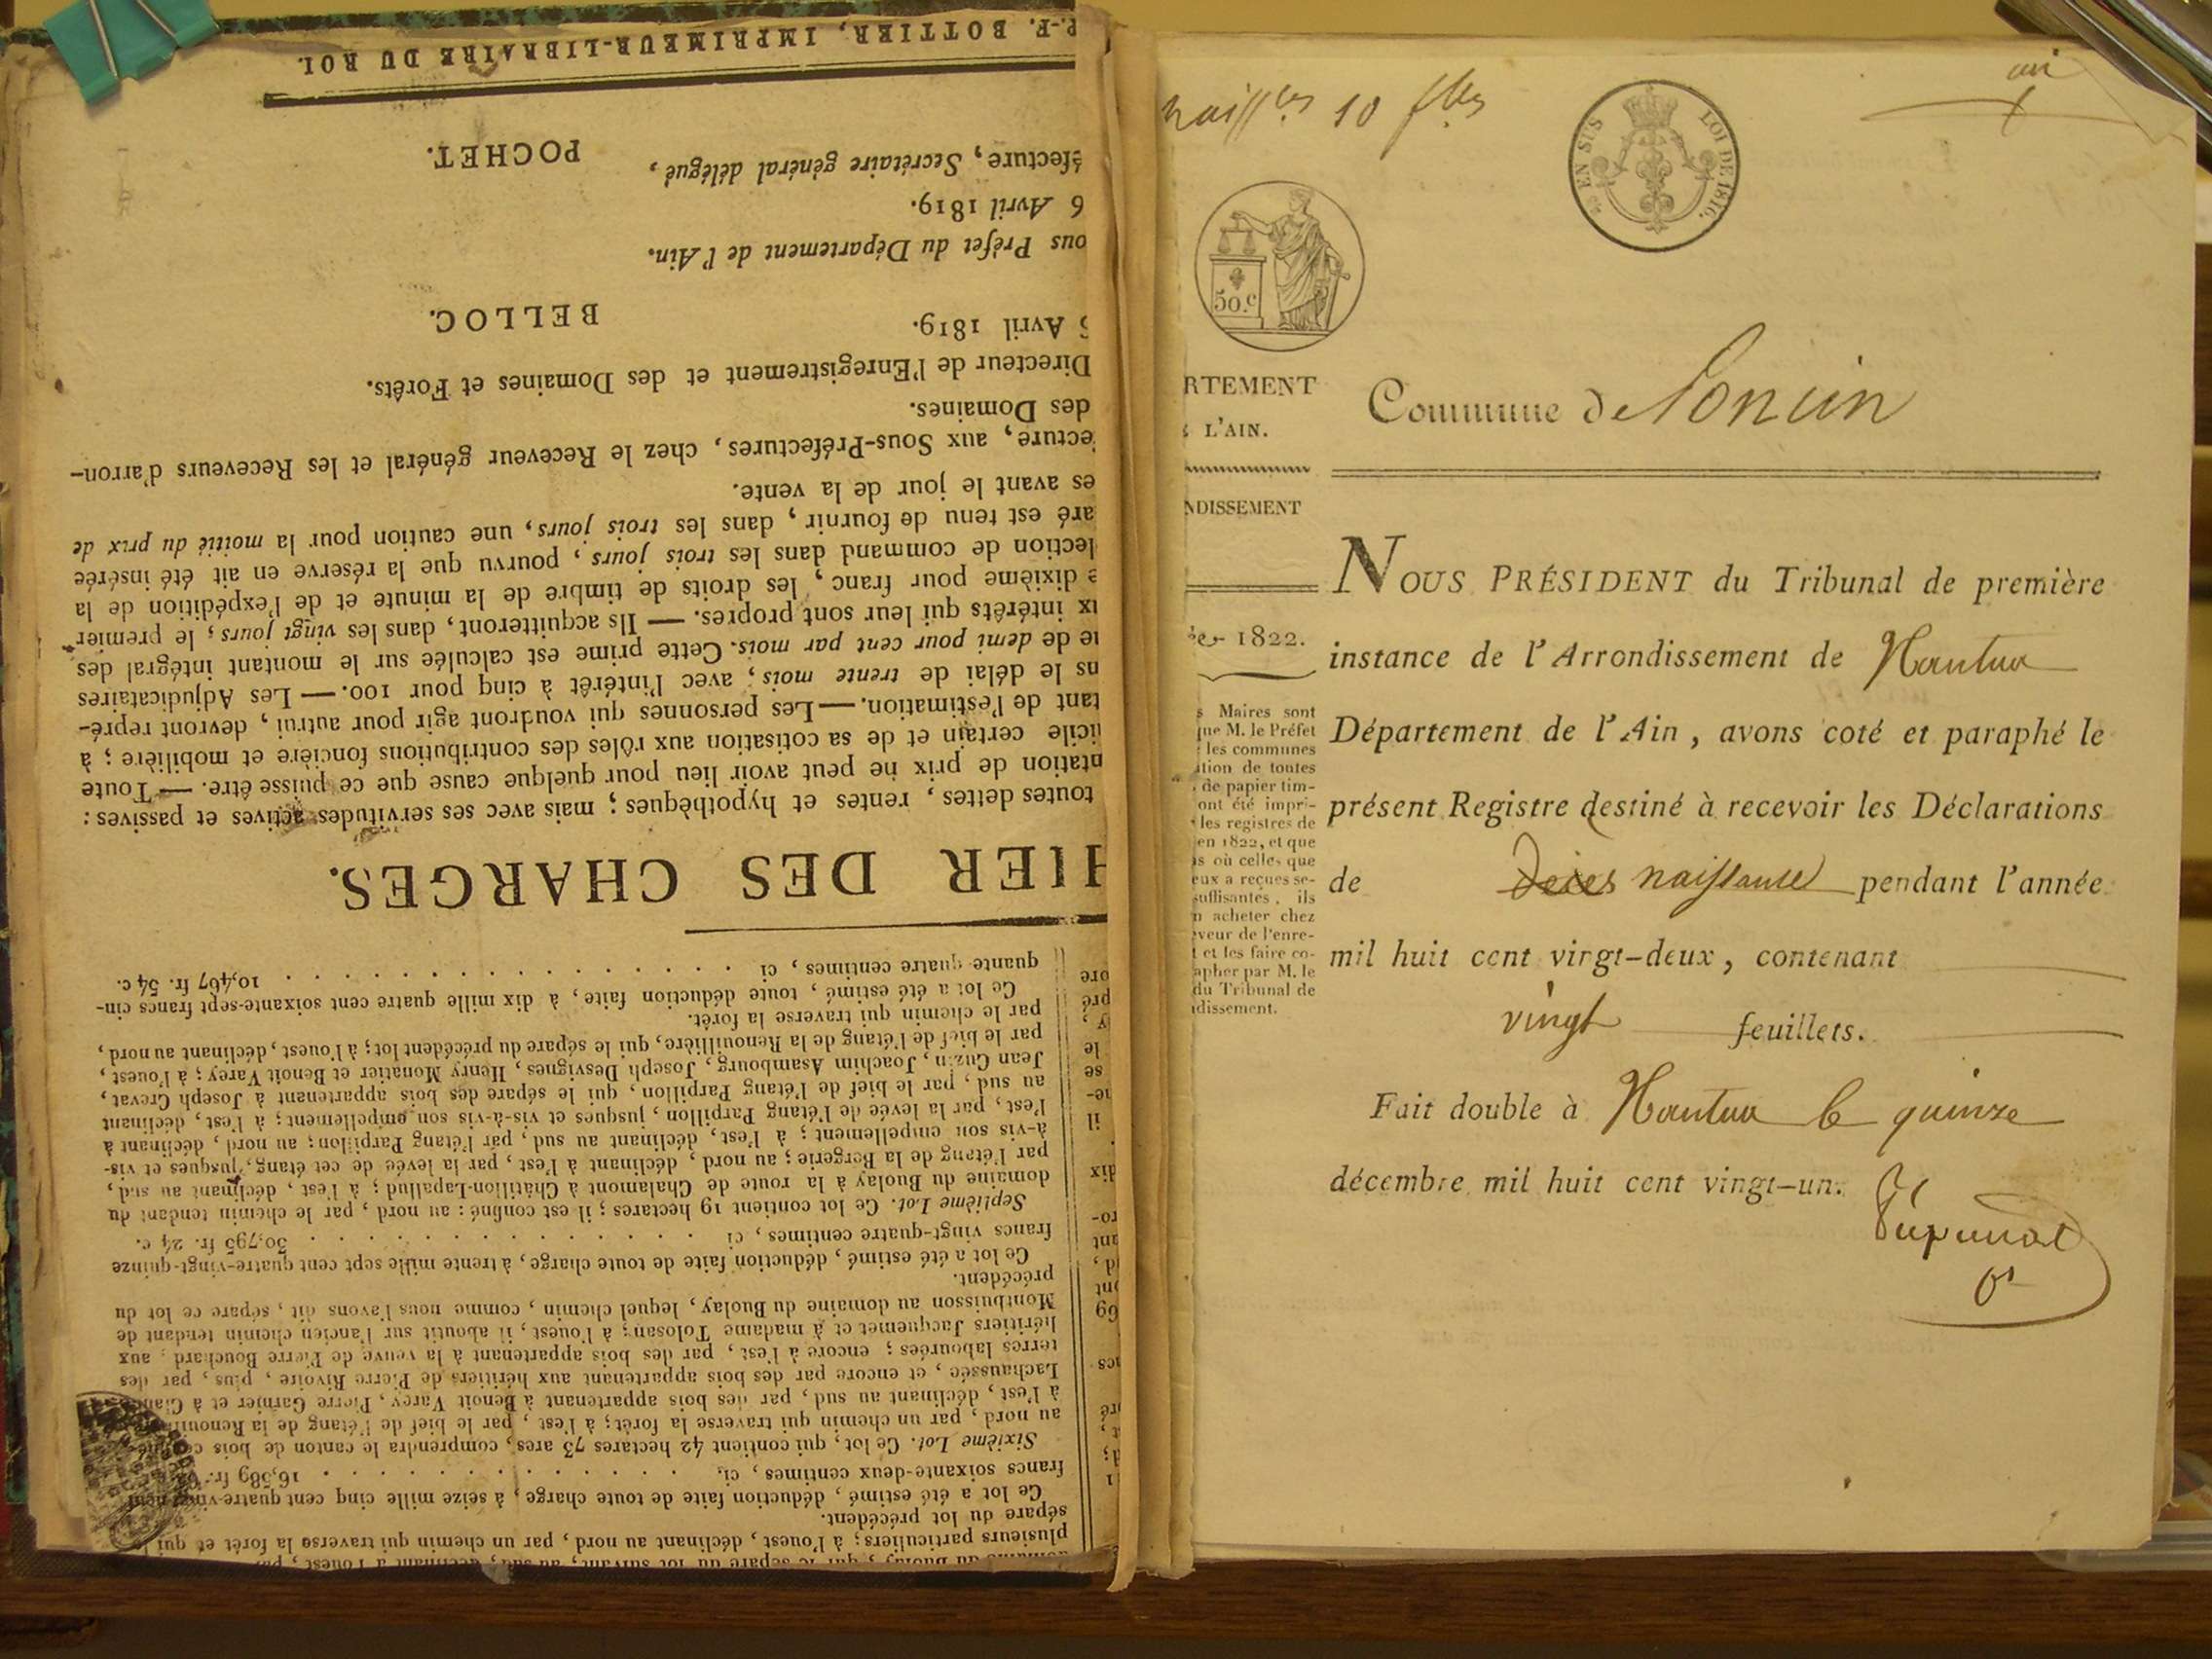 P.-F. BOTTIER, IMPRIMEUR-LIBRAIRE DU ROI.
éfecture, Secrétaire général délégué,
POCHET.
6 Avril 1819.
ous Préfet du Département de l'Ain.
BELLOC.
Avril 1819.
Directeur de l'Enregistrement et des Domaines et Forêts.
des Domaines.
ecture, aux Sous-Préfectures, chez le Receveur général et les Receveurs d'arron-
es avant le jour de la vente.
aré est tenu de fournir, dans les trois jours, une caution pour la moitié du prix de
lection de command dans les trois jours, pourvu que la réserve en ait été insérée
e dixième pour franc, les droits de timbre de la minute et de l'expédition de la
ux intérêts qui leur sont propres. — Ils acquitteront, dans les vingt jours, le premier
ue de demi pour cent par mois. Cette prime est calculée sur le montant intégral des
ns le délai de trente mois, avec l'intérêt à cinq pour 100. — Les Adjudicataires
tant de l'estimation. — Les personnes qui voudront agir pour autrui, devront repré-
icile certain et de sa cotisation aux rôles des contributions foncière et mobilière; à
ntation de prix ne peut avoir lieu pour quelque cause que ce puisse être. — Toute
toutes dettes, rentes et hypothèques; mais avec ses servitudes actives et passives:
HIER DES CHARGES.
quante quatre centimes, ci . . . . . . . . . . . . 10,467 fr. 54 c.
Ce lot a été estimé, toute déduction faite, à dix mille quatre cent soixante-sept francs cin-
par le chemin qui traverse la forêt.
par le bief de l'étang de la Renouillière, qui le sépare du précédent lot; à l'ouest, déclinant au nord,
Jean Guzin, Joachim Asambourg, Joseph Desvignes, Henry Monatier et Benoit Varey; à l'ouest,
au sud, par le bief de l'étang Parpillon, qui le sépare des bois appartenant à Joseph Crevat,
l'est, par la levée de l'étang Parpillon, jusques et vis-à-vis son empellement; à l'est, déclinant
à-vis son empellement; à l'est, déclinant au sud, par l'étang Parpillon; au nord, déclinant à
par l'étang de la Bergerie; au nord, déclinant à l'est, par la levée de cet étang, jusques et vis-
domaine du Buolay à la route de Chalamont à Châtillon-Lapallud; à l'est, déclinant au sud,
Septième Lot. Ce lot contient 19 hectares; il est confiné: au nord, par le chemin tendant du
francs vingt-quatre centimes, ci . . . . . . . . . . . . 30,795 fr. 24 c.
Ce lot a été estimé, déduction faite de toute charge, à trente mille sept cent quatre-vingt-quinze
précédent.
Montbuisson au domaine du Buolay, lequel chemin, comme nous l'avons dit, sépare ce lot du
héritiers Jacquemet et à madame Tolosan; à l'ouest, il aboutit sur l'ancien chemin tendant de
terres labourées; encore à l'est, par des bois appartenant à la veuve de Pierre Bouchard, aux
Lachaussée, et encore par des bois appartenant aux héritiers de Pierre Rivoire, plus, par des
à l'est, déclinant au sud, par des bois appartenant à Benoit Varey, Pierre Garnier et à
au nord, par un chemin qui traverse la forêt; à l'est, par le bief de l'étang de la
Sixième Lot. Ce lot, qui contient 42 hectares 73 ares, comprendra le canton de bois
francs soixante-deux centimes, ci. . . . . . . . . . . . 16,589 fr.
Ce lot a été estimé, déduction faite de toute charge, à seize mille cinq cent quatre-vingt-neuf
sépare du lot précédent.
plusieurs particuliers; à l'ouest, déclinant au nord, par un chemin qui traverse la forêt et qui
naiss.ces 10 f.lles
un
EN SUS
LOI DE 1816.
50.c
RTEMENT
L'AIN.
NDISSEMENT
1822.
s Maires sont
que M. le Préfet
les communes
ition de toutes
de papier tim-
ont été impri-
les registres de
en 1822, et que
s où celles que
eux a reçues se-
suffisantes, ils
n acheter chez
veur de l'enre-
t et les faire co-
apher par M. le
du Tribunal de
idissement.
Commune de Soncin
NOUS PRÉSIDENT du Tribunal de première
instance de l'Arrondissement de Nantua
Département de l'Ain, avons coté et paraphé le
présent Registre destiné à recevoir les Déclarations
de Décès naissance pendant l'année
mil huit cent vingt-deux, contenant
vingt feuillets.
Fait double à Nantua le quinze
décembre mil huit cent vingt-un.